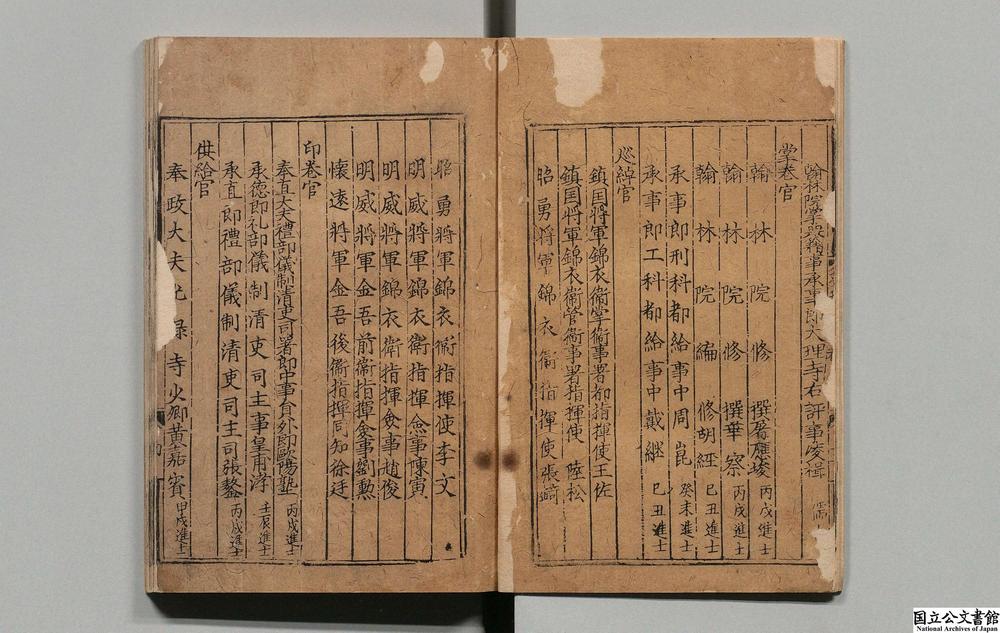 翰林院掌典籍事承事郎大理寺右評事凌楫 儒士
掌卷官
翰林院修撰屠應埈 丙戌進士
翰林院修撰華察 丙戌進士
翰林院編修胡經 己丑進士
承事郎刑科都給事中周崑 癸未進士
承事郎工科都給事中戴継 己丑進士
廵綽官
鎮国将軍錦衣衛掌衛事署都指揮使王佐
鎮国将軍錦衣衛管衛事署指揮使 陸松
昭勇将軍錦衣衛指揮使張錡
昭勇將軍錦衣衛指揮使李文
明威將軍錦衣衛指揮僉事陳寅
明威將軍錦衣衛指揮僉事趙俊
明威將軍金吾前衛指揮僉事劉勲
懐遠將軍金吾後衛指揮同知徐廷
印卷官
奉直大夫禮部儀制清吏司署郎中事員外郎歐陽塾 丙戌進士
承德郎礼部儀制清吏司主事皇甫涍 壬辰進士
承直郎禮部儀制清吏司主司張鏊 丙戌進士
供給官
奉政大夫光禄寺少卿黄嘉賓 甲戌進士
国立公文書館
National Archives of Japan